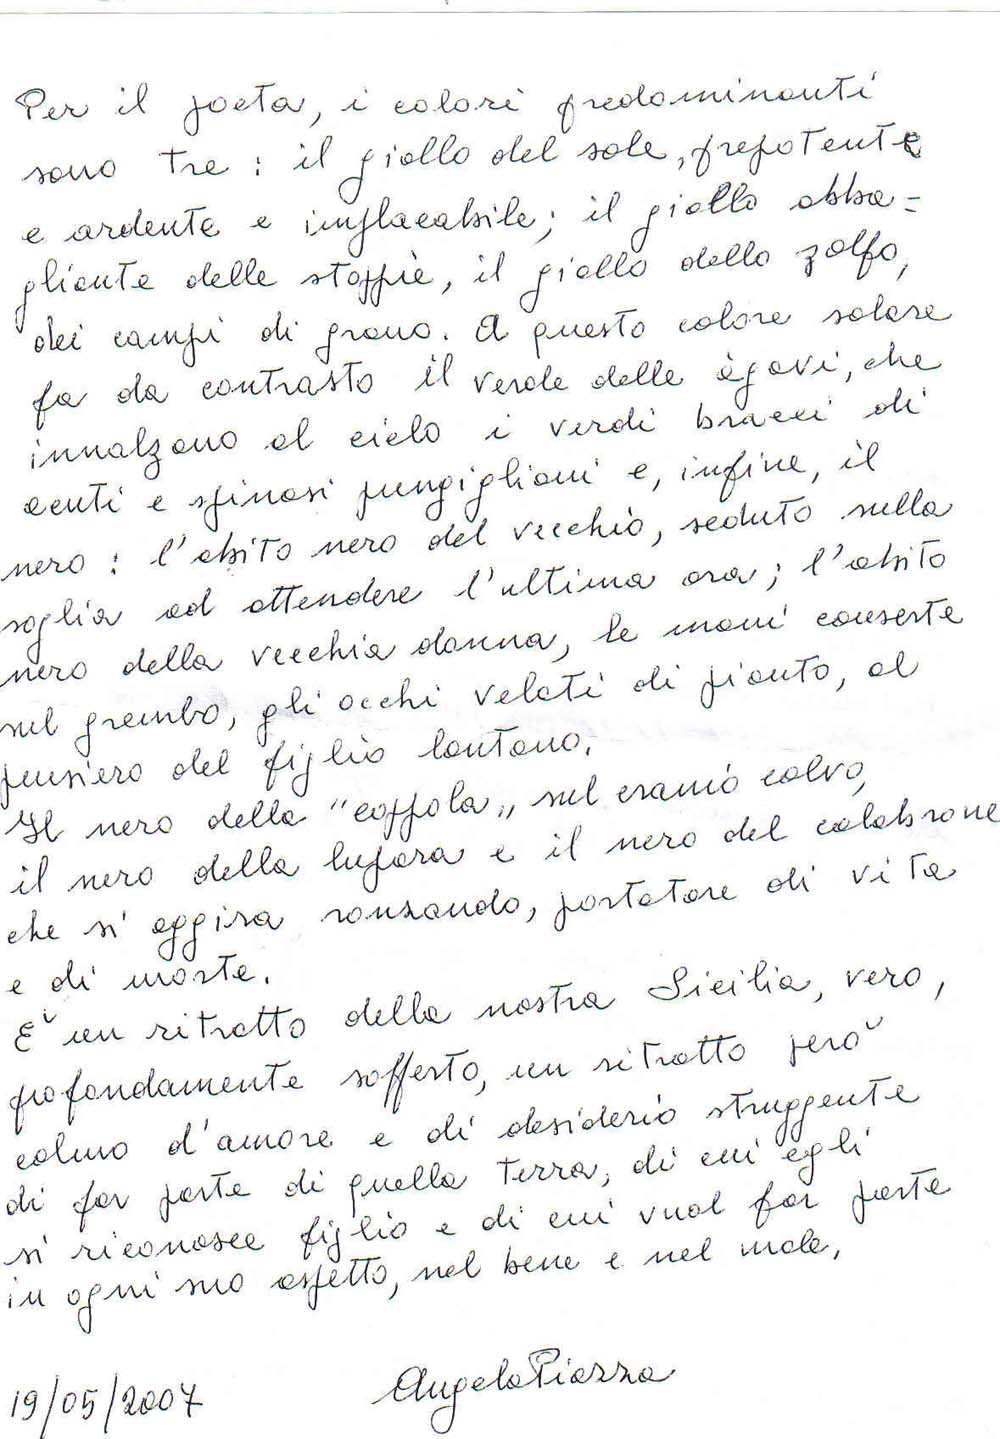 Per il poeta, i colori predominanti
sono tre : il giallo del sole, prepotente
e ardente e implacabile; il giallo abba=
gliante delle stoppie, il giallo dello zolfo,
dei campi di grano. A questo colore solare
fa da contrasto il verde delle àgavi, che
innalzano al cielo i verdi bracci di
acuti e spinosi pungiglioni e, infine, il
nero : l'abito nero del vecchio, seduto sulla
soglia ad attendere l'ultima ora; l'abito
nero della vecchia donna, le mani conserte
sul grembo, gli occhi velati di pianto, al
pensiero del figlio lontano.
Il nero della "coppola„ sul cranio calvo,
il nero della lupara e il nero del calabrone
che si aggira ronzando, portatore di vita
e di morte.
E' un ritratto della nostra Sicilia, vero,
profondamente sofferto, un ritratto però
colmo d'amore e di desiderio struggente
di far parte di quella terra, di cui egli
si riconosce figlio e di cui vuol far parte
in ogni suo aspetto, nel bene e nel male.
19/05/2007 Angela Piazza